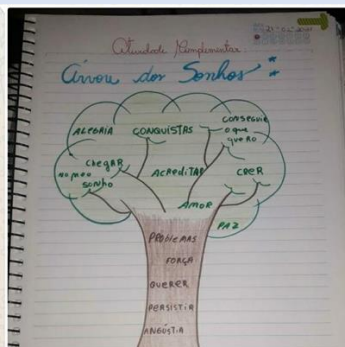 Atividade Complementar
Árvou dos Sonhos
ALEGRIA
CONQUISTAS
CONSEGUIR
O QUE
QUERO
CHEGAR
NO MEU
SONHO
ACREDITAR
CRER
AMOR
PAZ
PROBLEMAS
FORÇA
QUERER
PERSISTIR
ANGÚSTIA